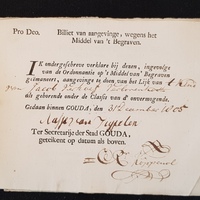 Pro Deo. Billiet van aangevinge, wegens het
Middel van 't Begraven.
IK ondergeschreve verklare bij dezen, ingevolge
van de Ordonnantie op 't Middel van 't Begraven
geëmaneert, aangevinge te doen van het Lijk van 't kind
van Jacob
als gehorende onder de Classis van d' onvermogende.
Gedaan binnen GOUDA, den 31 December 1805
Ter Secretarije der Stad GOUDA,
geteikent op datum als boven.